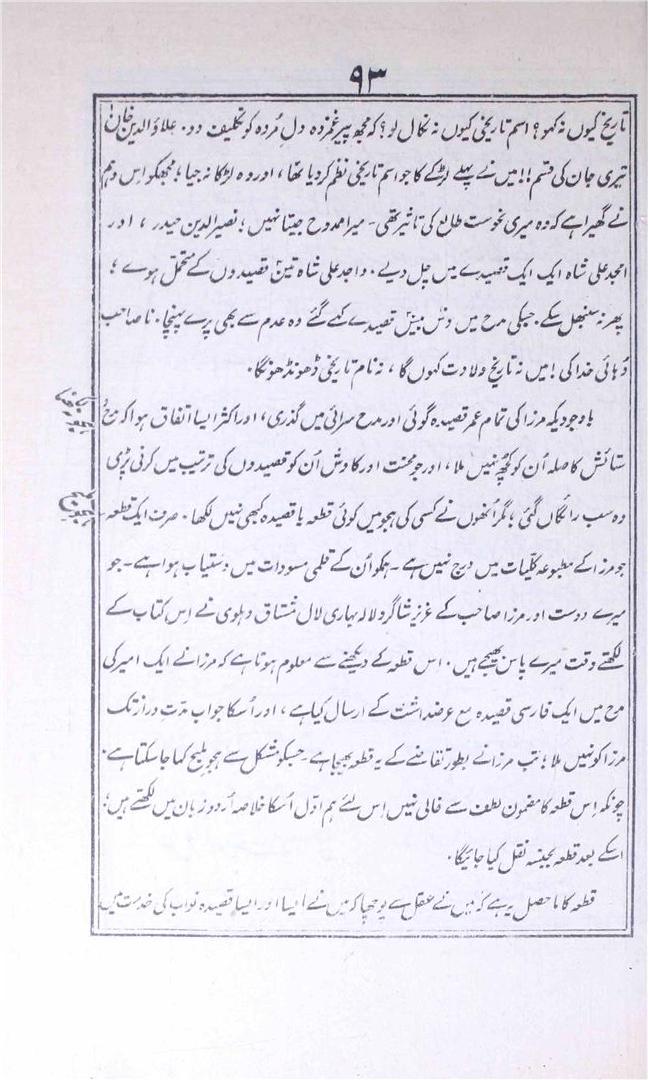 ۹۳
تاریخ کیوں نہ کہو؟ اسم تاریخی کیوں نہ نکال لو؟ کہ مجھ پیر غمزدہ دل مُردہ کو تکلیف دو۔ علاؤالدین خان!
تیری جان کی قسم!! میں نے پہلے لڑکے کا جو اسم تاریخی نظم کر دیا تھا، اور وہ لڑکا نہ جیا؛ مجھکو اِس وہم
نے گھیرا ہے کہ وہ میری نحوست طالع کی تاثیر تھی۔ میرا ممدوح جیتا نہیں؛ نصیرالدین حیدر، اور
امجد علی شاہ ایک ایک قصیدے میں چل دیے۔ واجد علی شاہ تین قصیدوں کے متحمل ہوے؛
پھر نہ سنبھل سکے۔ جسکی مدح میں دس بیس قصیدے کہے گئے وہ عدم سے بھی پرے پہنچا۔ نا صاحب
دُہائی خدا کی! میں نہ تاریخ ولادت کہوں گا، نہ نام تاریخی ڈھونڈھونگا۔
باوجودیکہ مرزا کی تمام عمر قصیدہ گوئی اور مدح سرائی میں گذری، اور اکثر ایسا اتفاق ہوا کہ مدح و
ستائش کا صلہ اُن کو کچھ نہیں ملا، اور جو محنت اور کاوش اُن کو قصیدوں کی ترتیب میں کرنی پڑی
وہ سب رائگاں گئی؛ مگر اُنھوں نے کسی کی ہجو میں کوئی قطعہ یا قصیدہ کبھی نہیں لکھا۔ صرف ایک قطعہ
جو مرزا کے مطبوعہ کلّیات میں درج نہیں ہے۔ ہمکو اُن کے قلمی مسودات میں دستیاب ہوا ہے۔ جو
میرے دوست اور مرزا صاحب کے عزیز شاگرد لالہ بہاری لال مشتاق دہلوی نے اِس کتاب کے
لکھتے وقت میرے پاس بھیجے ہیں۔ اس قطعہ کے دیکھنے سے معلوم ہوتا ہے کہ مرزا نے ایک امیر کی
مدح میں ایک فارسی قصیدہ مع عرضداشت کے ارسال کیا ہے، اور اُسکا جواب مدّتِ دراز تک
مرزا کو نہیں ملا؛ تب مرزا نے بطور تقاضے کے یہ قطعہ بھیجا ہے۔ جسکو مشکل سے ہجو ملیح کہا جا سکتا ہے۔
چونکہ اِس قطعہ کا مضمون لطف سے خالی نہیں اِس لئے ہم اوّل اُسکا خلاصہ اُردو زبان میں لکھتے ہیں؛
اسکے بعد قطعہ بجنسہ نقل کیا جائیگا۔
قطعہ کا ماحصل یہ ہے کہ میں نے عقل سے پوچھا کہ میں نے ایسا اور ایسا قصیدہ نواب کی خدمت میں